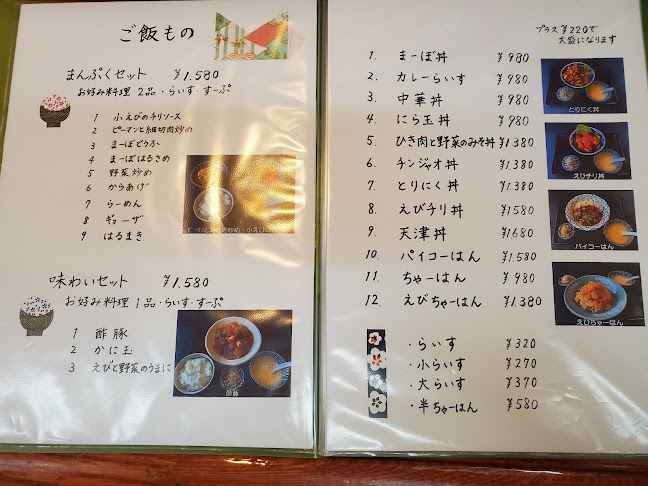 ご飯もの
まんぷくセット ¥1.580
お好み料理 2品・らいす・すーぷ
1 小えびのチリソース
2 ピーマンと細切肉炒め
3 まーぼどうふ
4 まーぼはるさめ
5 野菜炒め
6 からあげ
7 らーめん
8 ギョーザ
9 はるまき
味わいセット ¥1.580
お好み料理 1品・らいす・すーぷ
1 酢豚
2 かに玉
3 えびと野菜のうまに
酢豚
プラス¥220で
大盛になります
1. まーぼ丼 ¥980
2. カレーらいす ¥980
3. 中華丼 ¥980
4. にら玉丼 ¥980
5. ひき肉と野菜のみそ丼 ¥1.380
6. チンジャオ丼 ¥1.380
7. とりにく丼 ¥1.380
8. えびチリ丼 ¥1580
9. 天津丼 ¥1680
10. パイコーはん ¥1.580
11. ちゃーはん ¥980
12. えびちゃーはん ¥1.380
・らいす ¥320
・小らいす ¥270
・大らいす ¥370
・半ちゃーはん ¥580
とりにく丼
えびチリ丼
パイコーはん
えびちゃーはん